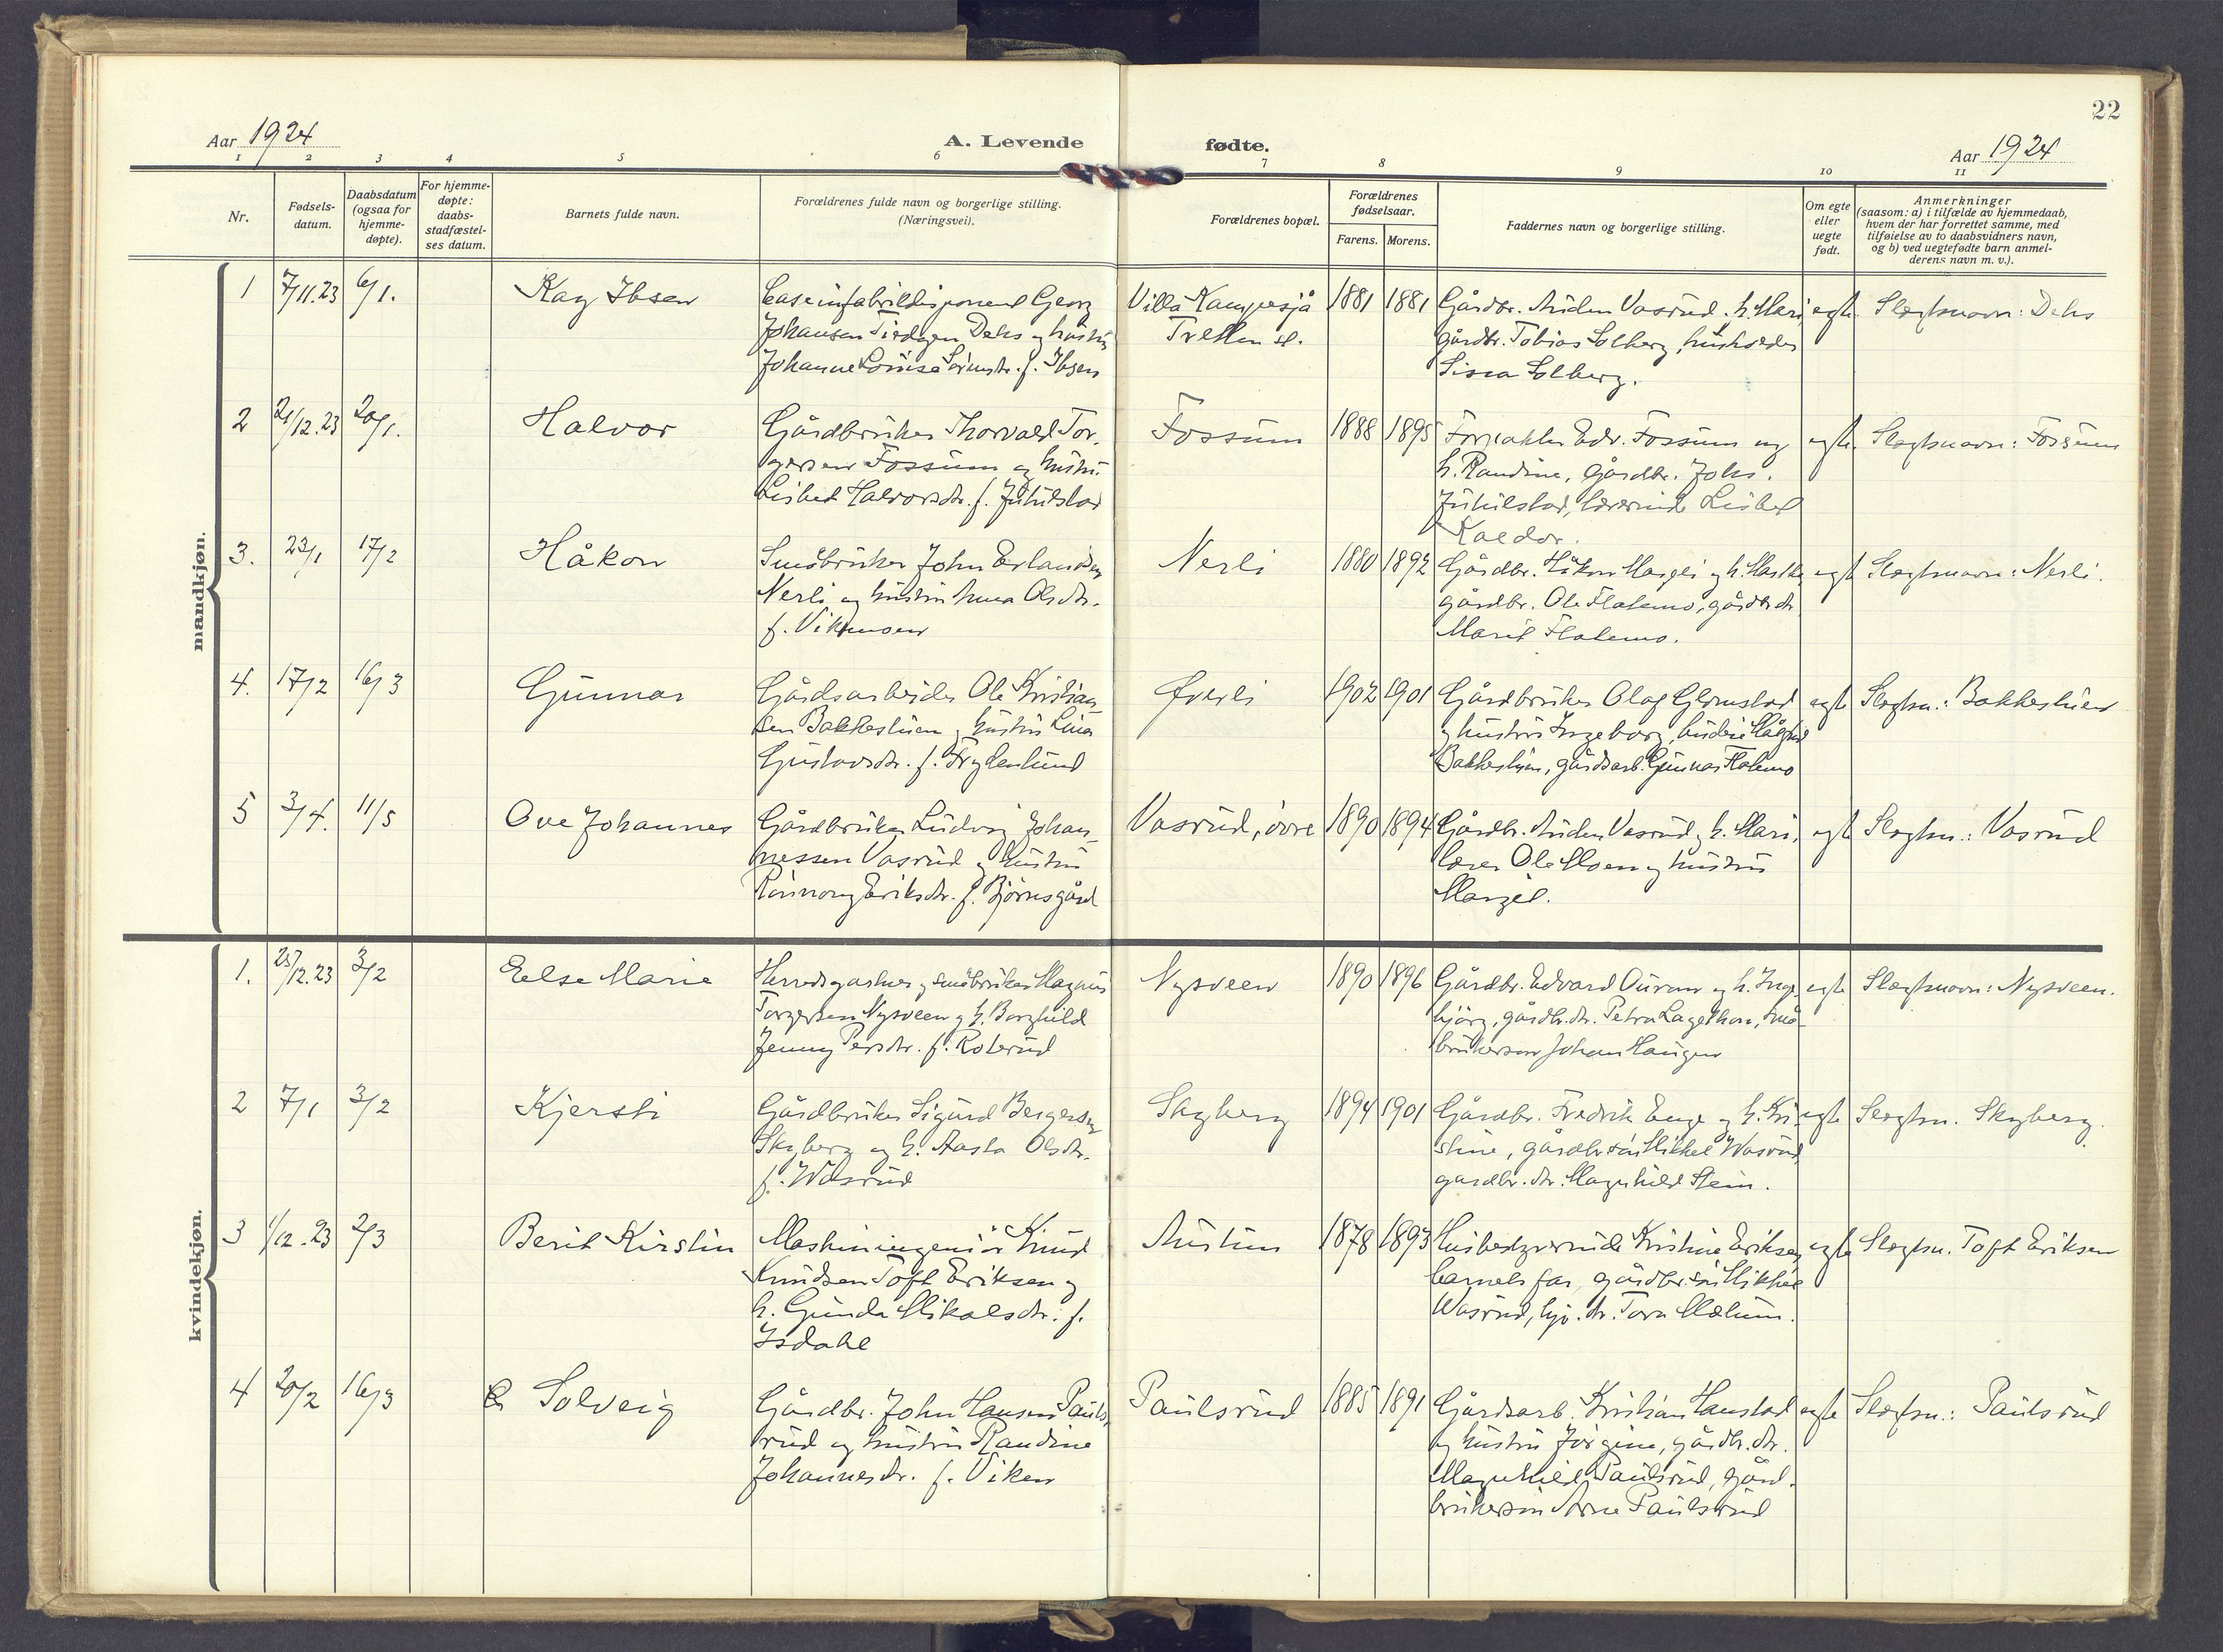 22
Aar 1924
A. Levende fødte.
Aar 1924
1 2 3 4 5 6 7 8 9 10 11
Nr.
Fødsels-
datum.
Daabsdatum
(ogsaa for
hjemme-
døpte).
For hjemme-
døpte:
daabs-
stadfæstel-
ses datum.
Barnets fulde navn.
Forældrenes fulde navn og borgerlige stilling.
(Næringsvei).
Forældrenes bopæl.
Forældrenes
fødselsaar.
Farens. Morens.
Faddernes navn og borgerlige stilling.
Om egte
eller
uegte
født.
Anmerkninger
(saasom: a) i tilfælde av hjemmedaab,
hvem der har forrettet samme, med
tilføielse av to daabsvidners navn,
og b) ved uegtefødte barn anmel-
derens navn m. v.).
mandkjøn.
1 7/11.23 6/1. Kay Ibsen
Georg
Johansen Dehs og hustru
Johanne Louise f. Ibsen
Villa Kampesjå
Tretten st.
1881 1881
Gårdbr. Auden Vasrud, h. Mari,
gårdbr. Tobias Solberg,
Solberg.
egte Slegtsnavn: Dehs
2 21/12.23 20/1. Halvor
Gårdbruker Thorvald Tor-
gersen Fossum og hustru
Lisbet Halvorsdtr. f. Jutulstad
Fossum
1888 1895
Forpakter Edv. Fossum og
h. Randine, Gårdbr. Johs.
Jutulstad, lærerinde Lisbet
Kaldor.
egte Slegtsnavn: Fossum
3. 23/1 17/2 Håkon
Småbruker John Erlandsen
Nerli og hustru Anna Olsdtr.
f. Vikmoen
Nerli
1880 1892
Gårdbr. Håkon og h. Marthe,
gårdbr. Ole Flatemo, gårdbr.dtr.
Marit Flatemo.
egte Slegtsnavn: Nerli.
4. 17/2 16/3 Gunnar
Gårdsarbeider Ole Kristian-
sen Bakkestuen og hustru Lina
Gustavsdtr. f. Frydenlund
Øverli
1902 1901
Gårdbruker Olag Glomstad
og hustru Ingeborg, budeie
Bakkestuen, gårdsarb. Gunnar Flatemo
egte Slegtsn.: Bakkestuen
5 3/4. 11/5 Ove Johannes
Gårdbruker Ludvig Johan-
nessen Vasrud og hustru
Rønnoug Eriksdtr. f. Bjørnsgård
Vasrud, øvre
1890 1894
Gårdbr. Auden Vasrud, h. Mari,
lærer Ole Moen og hustru
Margit.
egte Slegtsn.: Vasrud
kvindekjøn.
1. 25/12.23 3/2 Else Marie
Herredsgartner og småbruker Magnus
Torgersen Nysveen og h. Borghild
Jenny Persdtr. f. Roterud
Nysveen
1890 1896
Gårdbr. Edvard og h. Inge-
bjørg, gårdbr.dtr. Petra, små-
brukersøn Johan Haugen
egte Slegtsnavn: Nysveen.
2 7/1 3/2 Kjersti
Gårdbruker Sigurd Bergersen
Skyberg og h. Aasta Olsdtr.
f. Wasrud
Skyberg
1894 1901
Gårdbr. Fredrik Enge og h. Kri-
stine, gårdbr.søn Mikkel Wasrud,
gardbr.dtr. Magnhild Stein.
egte Slegtsn. Skyberg.
3 1/12.23 2/3 Berit Kirstin
Maskiningeniør Knud
Knudsen Toft Eriksen og
h. Gunda Mikalsdtr. f.
Isdahl
Austum
1878 1893
Husbestyrerinde Kristine Eriksen,
barnets far, gårdbr.søn Mikkel
Wasrud, hjv. dtr. Tora Mælum.
egte Slegtsn. Toft Eriksen
4 20/2 16/3 Solveig
Gårdbr. John Hansen Pauls-
rud og hustru Randine
Johannesdtr. f. Viken
Paulsrud
1885 1891
Gårdsarb. Kristian Hanstad
og hustru Jørgine, gårdbr.dtr.
Magnhild Paulsrud, Gård-
brukersøn Arne Paulsrud
egte Slegtsn.: Paulsrud